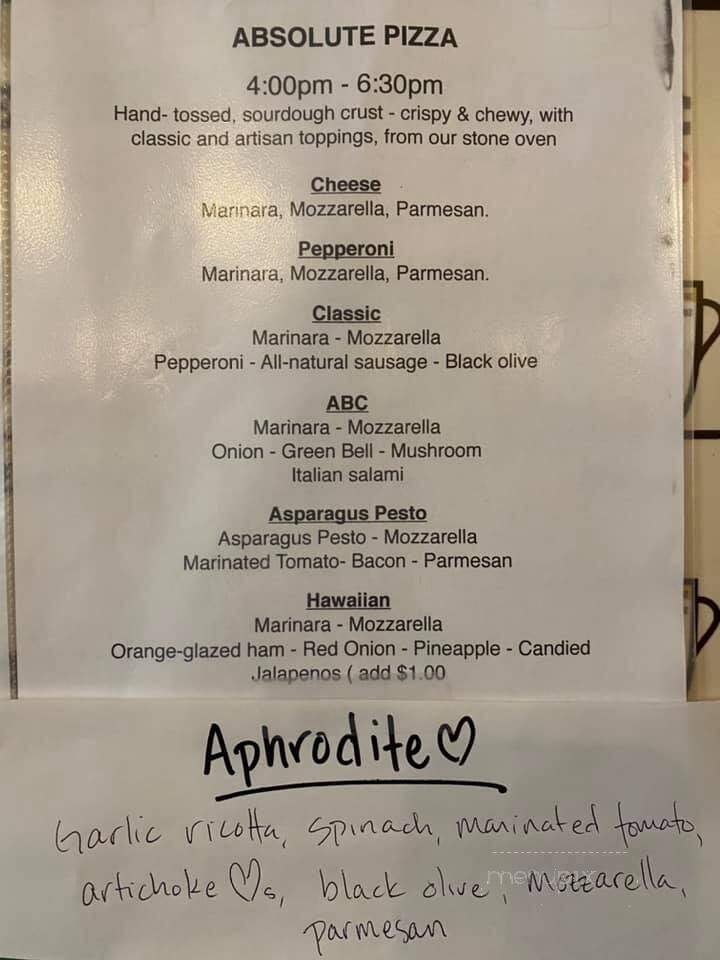 ABSOLUTE PIZZA
4:00pm - 6:30pm
Hand- tossed, sourdough crust - crispy & chewy, with
classic and artisan toppings, from our stone oven
Cheese
Marinara, Mozzarella, Parmesan.
Pepperoni
Marinara, Mozzarella, Parmesan.
Classic
Marinara - Mozzarella
Pepperoni - All-natural sausage - Black olive
ABC
Marinara - Mozzarella
Onion - Green Bell - Mushroom
Italian salami
Asparagus Pesto
Asparagus Pesto - Mozzarella
Marinated Tomato- Bacon - Parmesan
Hawaiian
Marinara - Mozzarella
Orange-glazed ham - Red Onion - Pineapple - Candied
Jalapenos ( add $1.00
Aphrodite♡
Garlic ricotta, spinach, marinated tomato,
artichoke ♡s, black olive, mozzarella,
parmesan
menupix